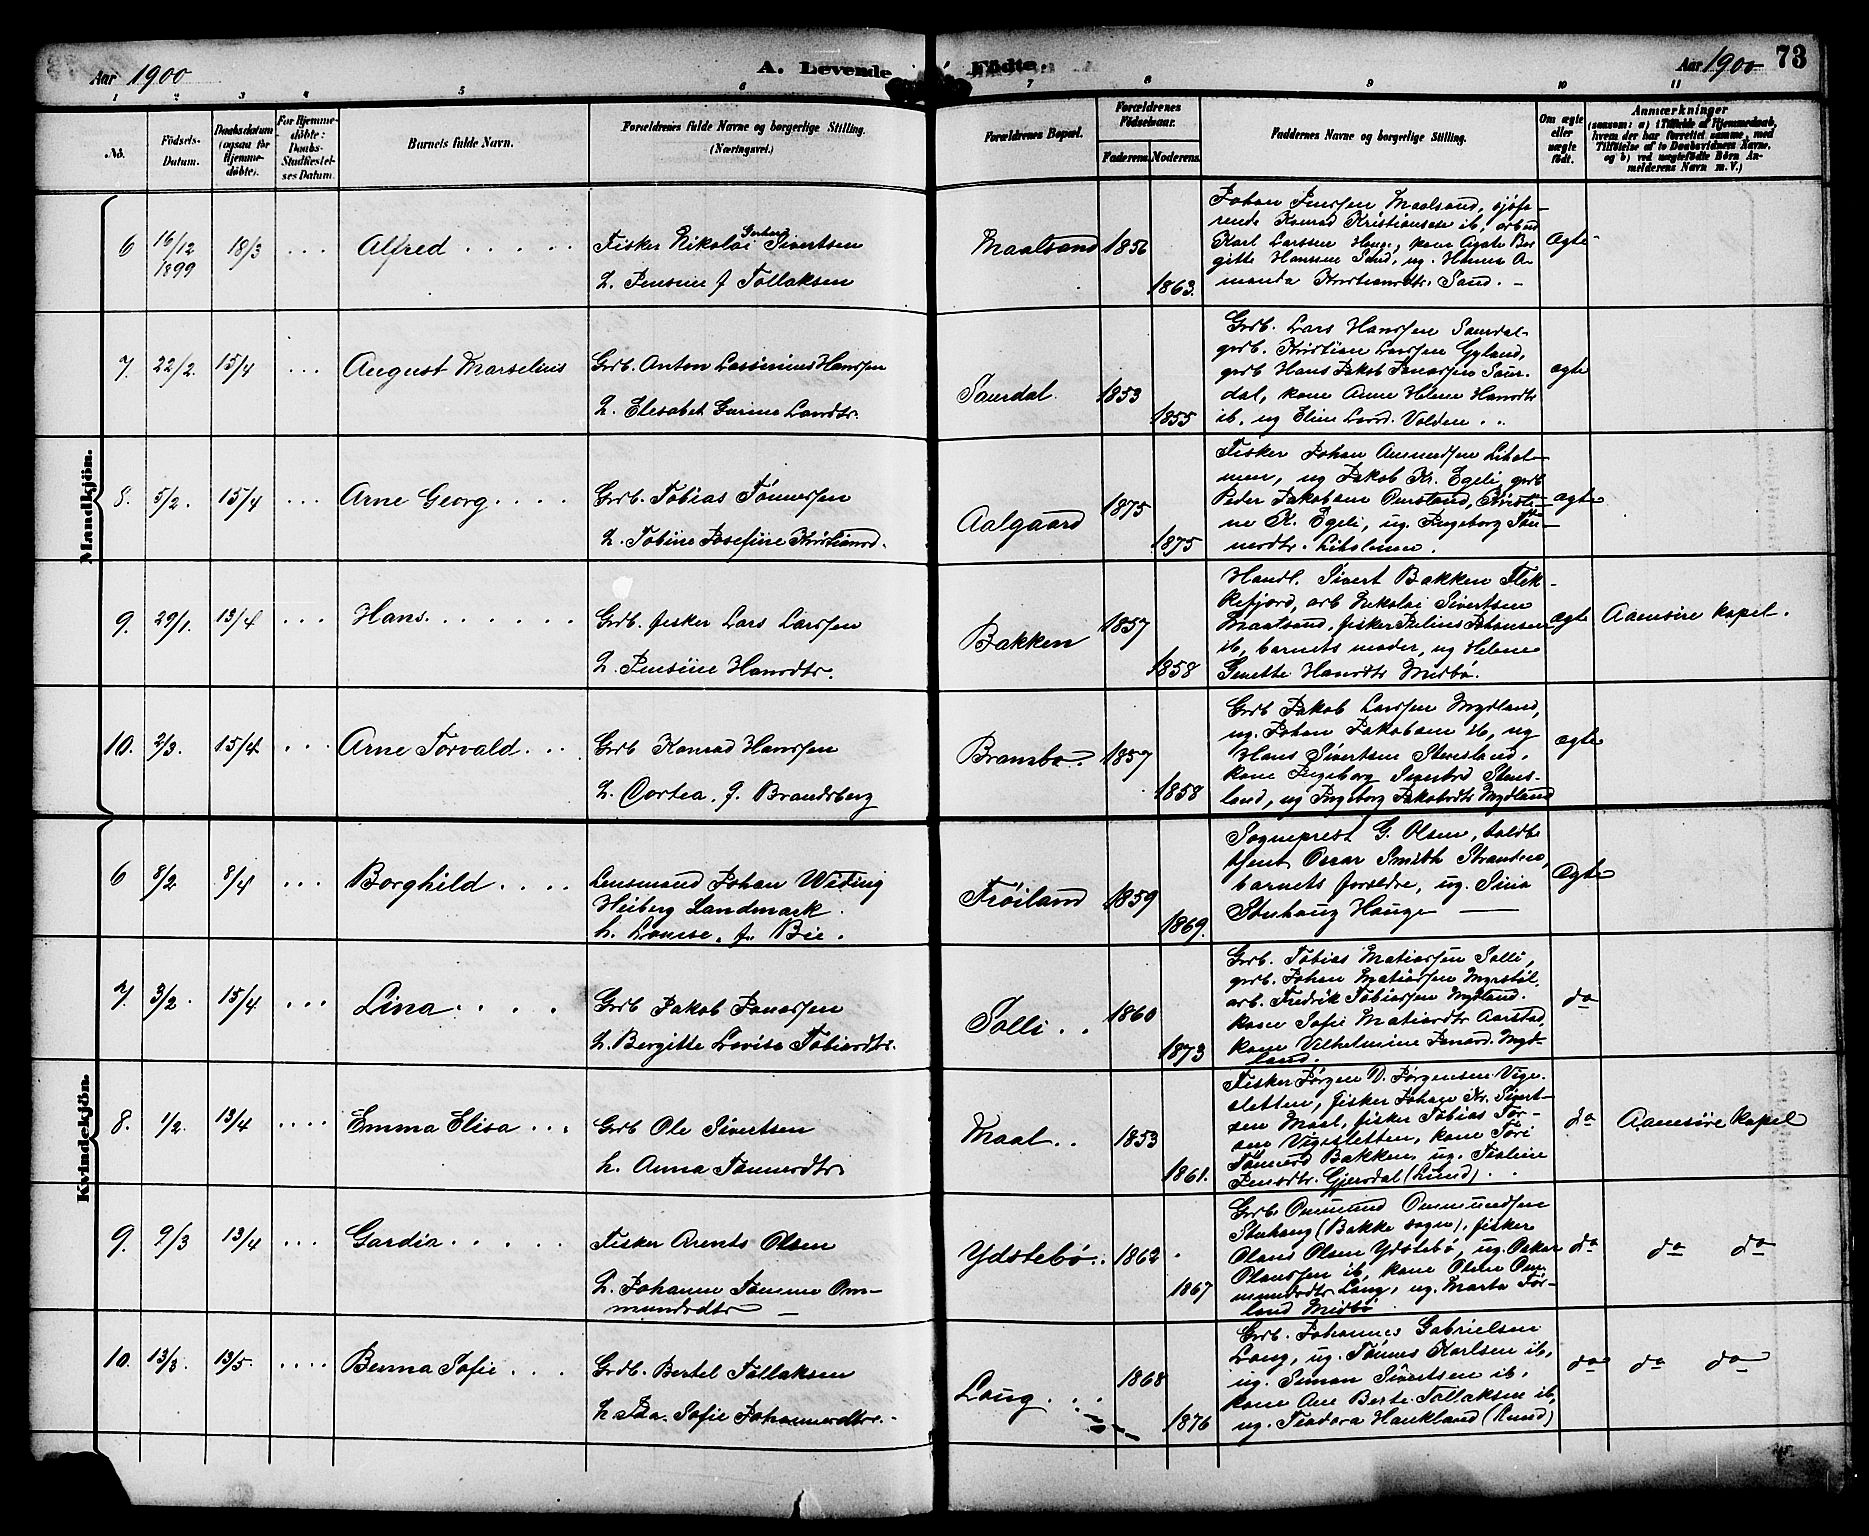 Aar 1900
A. Levende
Födte.
Aar 1900
73
1 2 3 4 5 6 7 8 9 10 11
No.
Födsels-
Datum.
Daabsdatum
(ogsaa for
Hjemme-
döbte).
For Hjemme-
döbte:
Daabs-
Stadfæstel-
ses Datum.
Barnets fulde Navn.
Forældrenes fulde Navne og borgerlige Stilling.
(Næringsvei.)
Forældrenes Bopæl.
Forældrenes
Födselsaar.
Faderens. Moderens.
Faddernes Navne og borgerlige Stilling.
Om ægte
eller
uægte
født.
Anmærkninger
(saasom: a) i Tilfælde af Hjemmedaab,
hvem der har forrettet samme, med
Tilföielse af to Daabsvidners Navne,
og b) ved uægtefödte Börn An-
melderens Navn m. V.)
Mandkjön.
6 16/12 1899 18/3 ... Alfred
Fisker Nikolai Sivertsen
H. Jensine f Tollaksen
Maalsand 1856
1863.
Johan Jenssen Maalsand, sjøfa-
rende Konrad Kristiansen ib, arbmd
Karl Larssen Haug, kone Agate Ber
gitte Hanssen Sand, ug. Hanna A-
manda Kristiansdtr. Sand. -
ægte
7. 22/2. 15/4 ... August Marselius
Grdb. Anton Hanssen
H. Elisabet Gurine Larsdtr.
Saurdal. 1853
1855
Grdb. Lars Hanssen Saurdal-
grdb. Kristian Larssen Gyland,
grdb Hans Jakob Jonassen Saur-
dal, kone Anne Helene Hansdtr
ib, ug Eline Larsd. Volden ..
ægte
8. 5/2. 15/4 ... Arne Georg
Grdb. Tobias Tønnessen
H. Tobine Josefine Kristiansd.
Aalgaard 1875
1875
Fisker Johan
, ug Jakob Kr. Egeli, grdb
Peder Jakobsen Omstand, Kristi-
ne K. Egeli, ug. Ingeborg Tøn-
nesdtr.
ægte
9. 29/1. 13/4 ... Hans
Grdb. fisker Lars Larssen
H. Jensine Hansdtr.
Bakken 1857
1858
Handl. Sivert Bakken Flek-
kefjord, arb Nikolai Sivertsen
Maalsand, fisker Johansen
ib, barnets moder, ug Helene
Genette Hansdtr Midbø.
ægte Aamsire kapel.
10. 2/3. 15/4 ... Arne Torvald
Grdb Konrad Hanssen
H. Cortea. f. Brandsberg
Brambo. 1857
1858
Grdb Jakob Larssen Mydland,
ug. Johan Jakobsen ib, ug
Hans Sivertsen Stensland,
kone Ingeborg Sivertsd Stens-
land, ug Ingeborg Jakobsdtr Mydland
ægte
Kvindekjön.
6 8/2 8/4 ... Borghild
Lensmand Johan Widing
Heiberg Landmark.
H. Louise. f. Bie.
Frøiland 1859
1869.
Sogneprest G. Olsen, toldbe
tjent Oscar Smith Stranden,
barnets forældre, ug. Sina
Stuhaug Hauge
Ægte
7. 3/2. 15/4 ... Lina
Grdb Jakob Jonassen
H. Bergitte Lovise Tobiasdtr.
Solli 1860
1873
Grdb. Tobias Matiassen Solli,
grdb. Johan Matiassen Myrstøl,
arb. Fredrik Tobiassen Mydland.
kone Sofie Matiasdtr Aarstad,
kone Vilhelmine Jonasd. Myd-
land.
do
8. 1/2. 13/4 .... Emma Elisa
Grdb Ole Sivertsen
H. Anna Tønnesdtr
Maal 1853
1861.
Fisker Jørgen D. Jørgensen Vige-
sletten, fisker Johan Kr. Sivert-
sen Maal, fisker Tobias Tor-
 Vigesletten, kone Tori
Tønnesd Bakken, ug. Teoline
Jensdtr. Gjersdal (Lund)
do Aamsire kapel
9. 9/3 13/4 ... Gardia
Fisker Arents Olsen
H. Johanne Tomine Om-
mundsdtr
Ydstebø 1862
1867
Grdb. Ommund Ommundsen
Stuhaug (Bakke sogn), fisker
Olaus Olsen Ydstebø, ug. Oskar
Olaussen ib, kone Oline Om-
mundsdtr Laug, ug. Marta Tør-
land Midbø
do do do
10. 13/3. 13/5. .... Benna Sofie
Grdb. Bertel Tollaksen
H Ida Sofie Johannesdtr.
Laug 1868
1876
Grdb. Johannes Gabrielsen
Laug, ug. Tønnes Karlsen ib,
ug. Simon Sivertsen ib,
kone Ane Berte Tollaksen ib,
ug. Teodora Haukland (Lund)
do do do